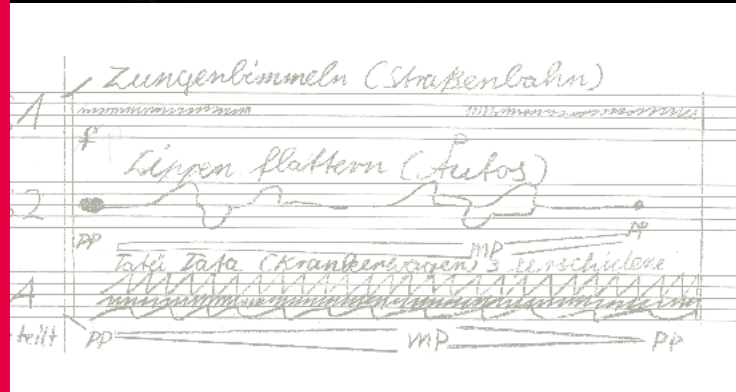 Zungenbimmeln (Straßenbahn)
1
f
Lippen flattern (Autos)
2
pp mp pp
Tatü Tata (Krankenwagen) 3 verschiedene
A
teilt pp mp pp